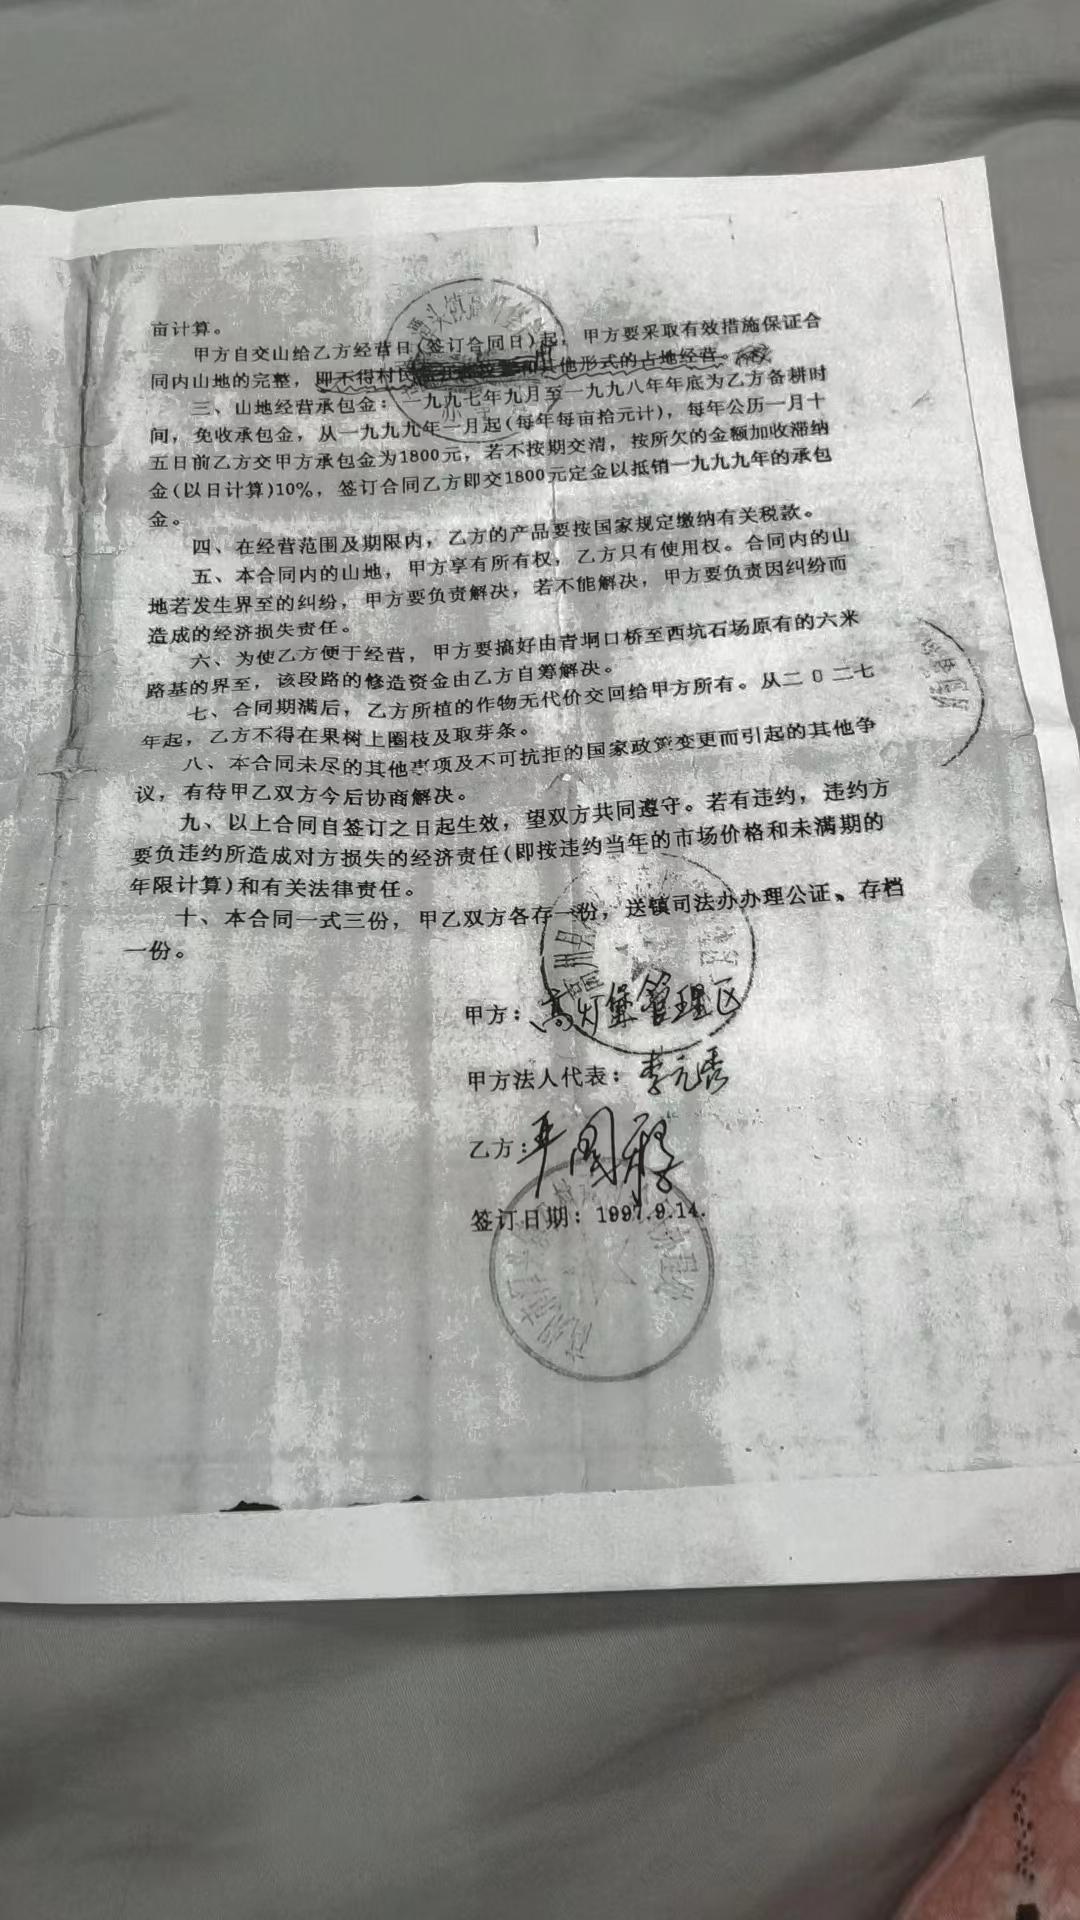 亩计算。
甲方自交山给乙方经营日(签订合同日)起，甲方要采取有效措施保证合
同内山地的完整，即不得村民和其他形式的占地经营。
三、山地经营承包金：一九九七年九月至一九九八年年底为乙方备耕时
间，免收承包金，从一九九九年一月起(每年每亩拾元计)，每年公历一月十
五日前乙方交甲方承包金为1800元，若不按期交清，按所欠的金额加收滞纳
金(以日计算)10%，签订合同乙方即交1800元定金以抵销一九九九年的承包
金。
四、在经营范围及期限内，乙方的产品要按国家规定缴纳有关税款。
五、本合同内的山地，甲方享有所有权，乙方只有使用权。合同内的山
地若发生界至的纠纷，甲方要负责解决，若不能解决，甲方要负责因纠纷而
造成的经济损失责任。
六、为使乙方便于经营，甲方要搞好由青垌口桥至西坑石场原有的六米
路基的界至，该段路的修造资金由乙方自筹解决。
七、合同期满后，乙方所植的作物无代价交回给甲方所有。从二0二七
年起，乙方不得在果树上圈枝及取芽条。
八、本合同未尽的其他事项及不可抗拒的国家政策变更而引起的其他争
议，有待甲乙双方今后协商解决。
九、以上合同自签订之日起生效，望双方共同遵守。若有违约，违约方
要负违约所造成对方损失的经济责任(即按违约当年的市场价格和未满期的
年限计算)和有关法律责任。
十、本合同一式三份，甲乙双方各存一份，送镇司法办办理公证、存档
一份。
甲方：高灯堡管理区
甲方法人代表：李元秀
乙方：
签订日期：1997.9.14.